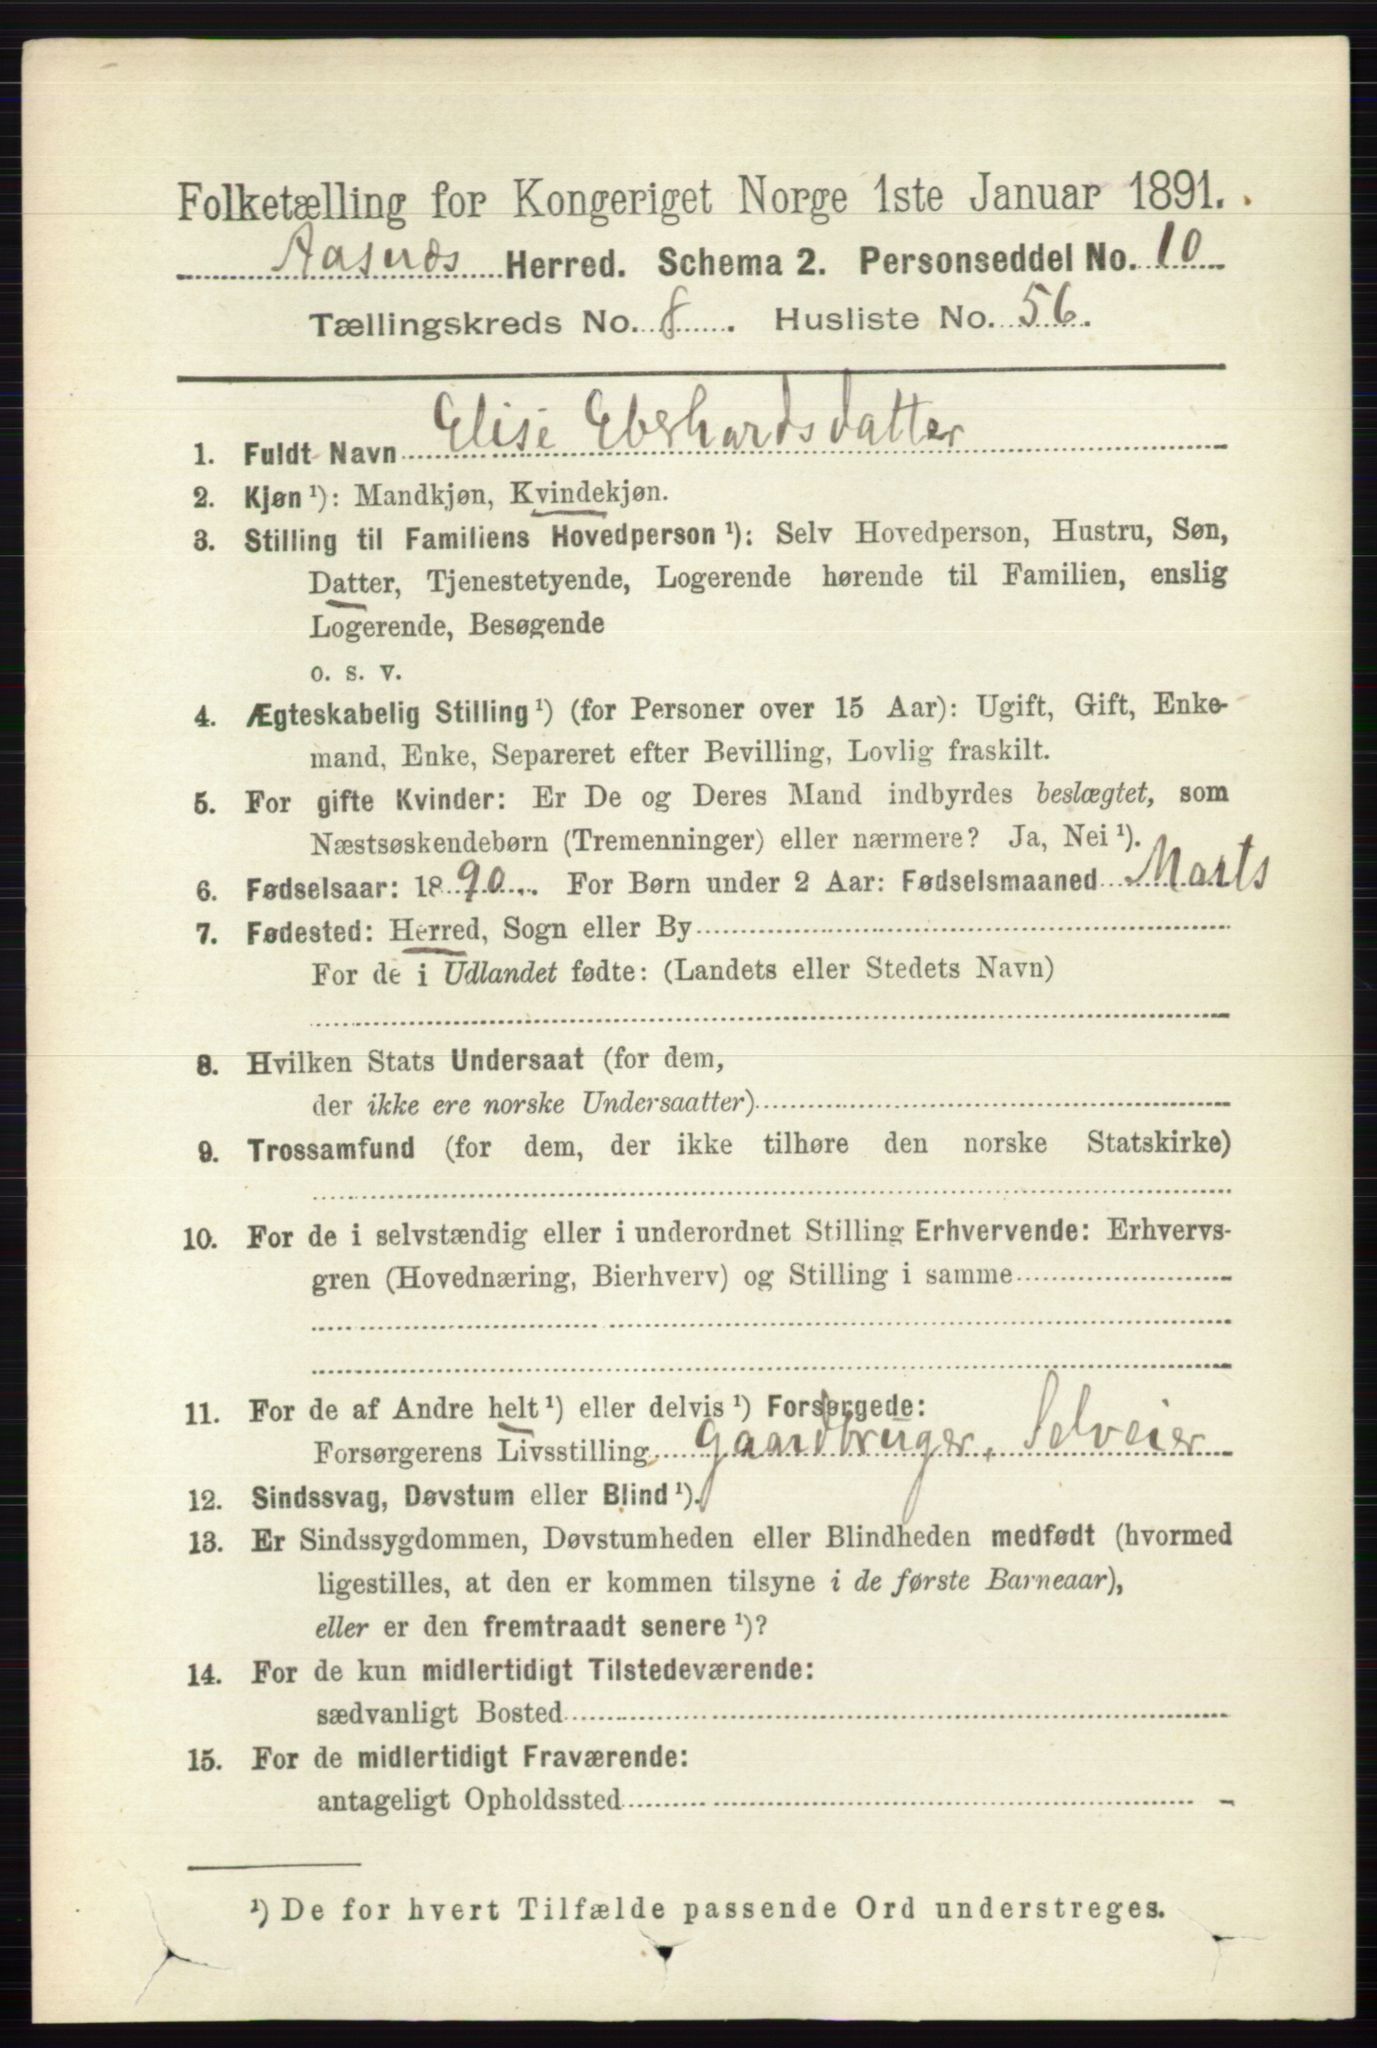 Folketælling for Kongeriget Norge 1ste Januar 1891.
Aasnes Herred. Schema 2. Personseddel No. 10
Tællingskreds No. 8. Husliste No. 56.
1. Fuldt Navn Elise Eberhardsdatter
2. Kjøn ¹): Mandkjøn, Kvindekjøn.
3. Stilling til Familiens Hovedperson ¹): Selv Hovedperson, Hustru, Søn,
Datter, Tjenestetyende, Logerende hørende til Familien, enslig
Logerende, Besøgende
o. s. v.
4. Ægteskabelig Stilling ¹) (for Personer over 15 Aar): Ugift, Gift, Enke-
mand, Enke, Separeret efter Bevilling, Lovlig fraskilt.
5. For gifte Kvinder: Er De og Deres Mand indbyrdes beslægtet, som
Næstsøskendebørn (Tremenninger) eller nærmere? Ja, Nei ¹).
6. Fødselsaar: 1890. For Børn under 2 Aar: Fødselsmaaned Marts
7. Fødested: Herred, Sogn eller By
For de i Udlandet fødte: (Landets eller Stedets Navn)
8. Hvilken Stats Undersaat (for dem,
der ikke ere norske Undersaatter)
9. Trossamfund (for dem, der ikke tilhøre den norske Statskirke)
10. For de i selvstændig eller i underordnet Stilling Erhvervende: Erhvervs-
gren (Hovednæring, Bierhverv) og Stilling i samme
11. For de af Andre helt ¹) eller delvis ¹) Forsørgede:
Forsørgerens Livsstilling Gaardbruger, Selveier
12. Sindssvag, Døvstum eller Blind ¹).
13. Er Sindssygdommen, Døvstumheden eller Blindheden medfødt (hvormed
ligestilles, at den er kommen tilsyne i de første Barneaar),
eller er den fremtraadt senere ¹)?
14. For de kun midlertidigt Tilstedeværende:
sædvanligt Bosted
15. For de midlertidigt Fraværende:
antageligt Opholdssted
¹) De for hvert Tilfælde passende Ord understreges.